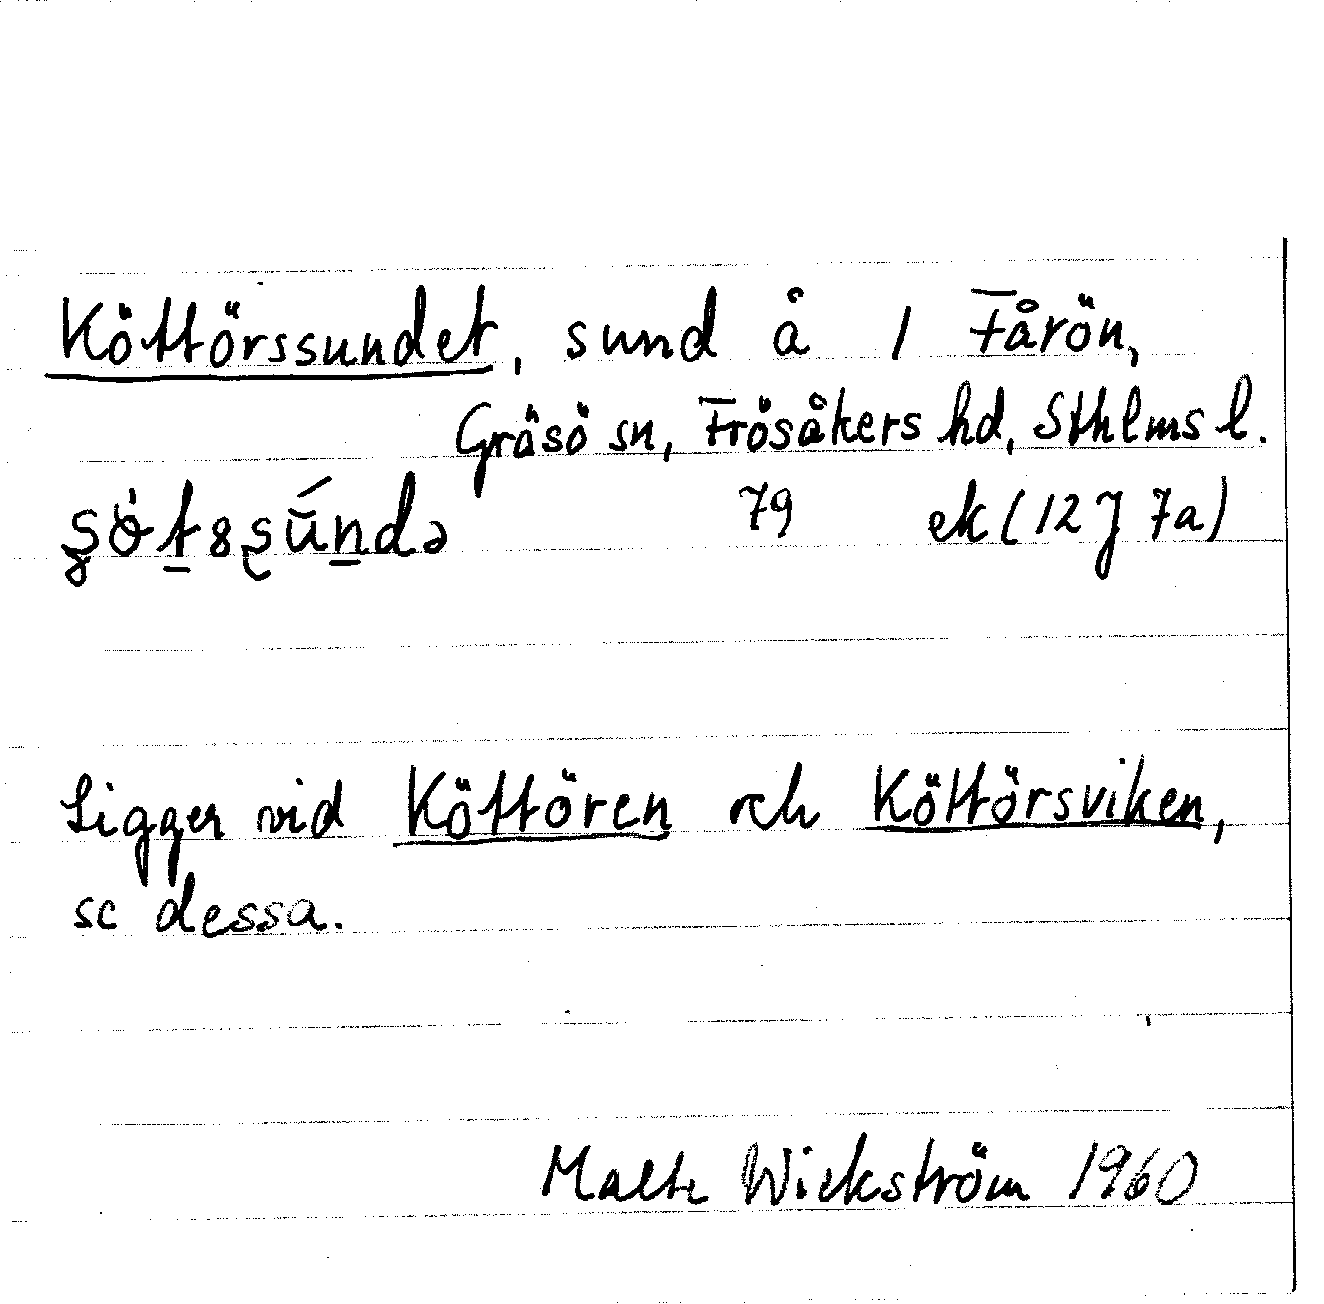 Köttörssundet, sund å 1 Fårön,
Gräsö sn, Frösåkers hd, Sthlms l.
79 ek (12J 7a)
Ligger vid Köttören och Köttörsviken,
se dessa.
Malte Wickström 1960